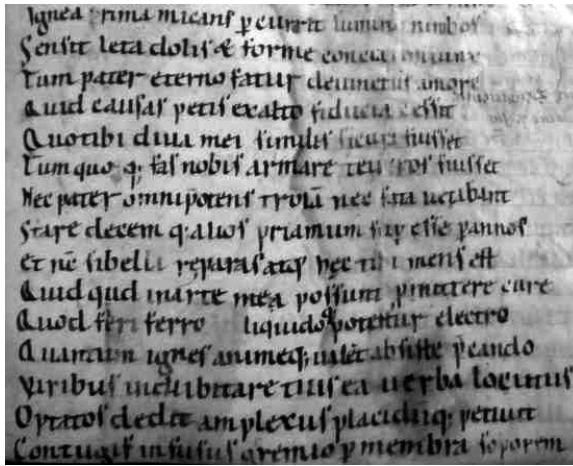 Ignea rima micans p currit lumine nimbos
Sensit leta dolis & forme conscia coniunx
Tum pater eterno fatur deuinctus amore
Quid causas petis exalto fiducia cessit
Quo tibi diua mei similis si cura fuisset
Tum quo q; fas nobis armare teucros fuisset
Nec pater omnipotens troiā nec fata uetabant
Stare decem q; alios priamum sup esse p annos
Et nc̄ si bella reparas atq; hec tibi mens est
Quid qud inarte mea possum pmittere cure
Quod feri ferro liquido q; potetur electro
Quantum ignes anime q; ualēt absiste pcando
Viribus indubitare tuis ea uerba locutus
Optatos dedit amplexus placidūq; petiuit
Coniugis infusus gremio p membra soporem